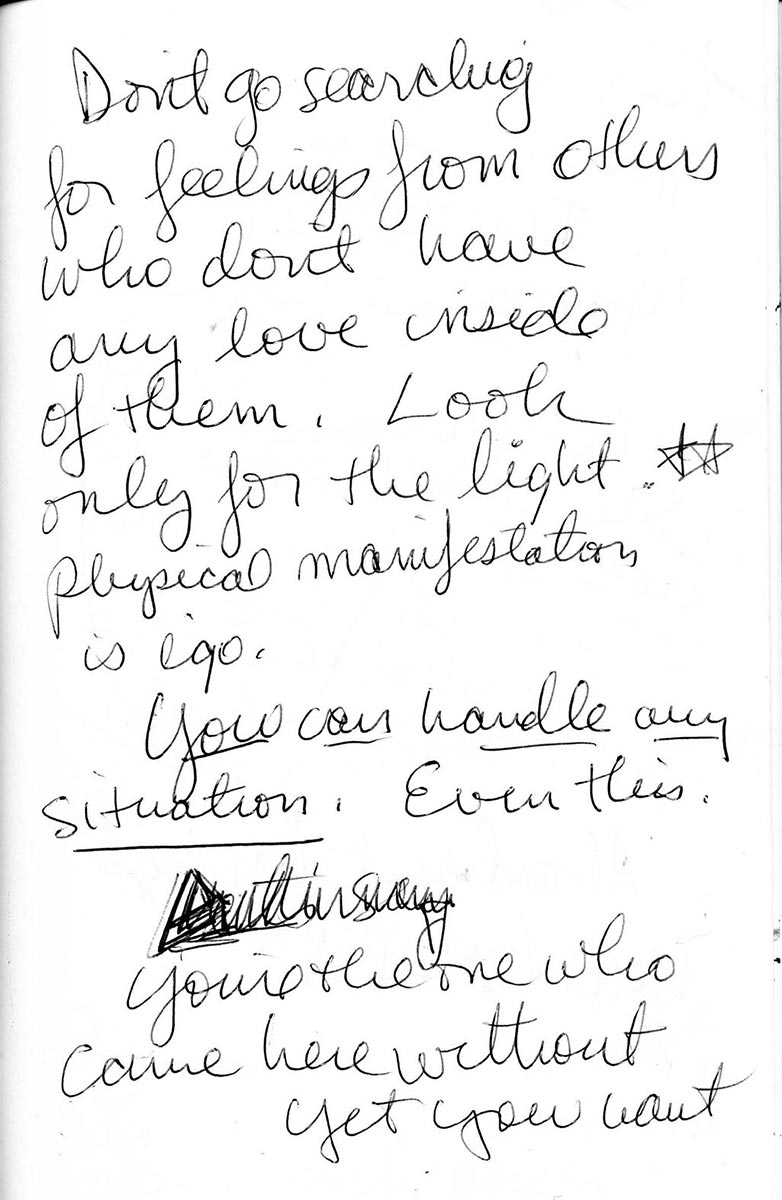 Don't go searching
for feelings from others
who don't have
any love inside
of them. Look
only for the light. ☆☆
physical manifestation
is ego.
You can handle any
situation. Even this.
You're the one who
came here without
yet you want